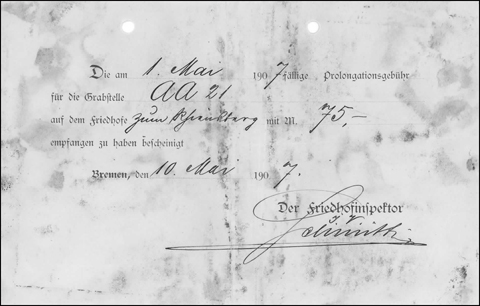 Die am 1. Mai 1907 fällige Prolongationsgebühr
für die Grabstelle AA 21
auf dem Friedhofe zum Rhiensberg mit M. 75,-
empfangen zu haben bescheinigt
Bremen, den 10. Mai 1907.
Der Friedhofinspektor